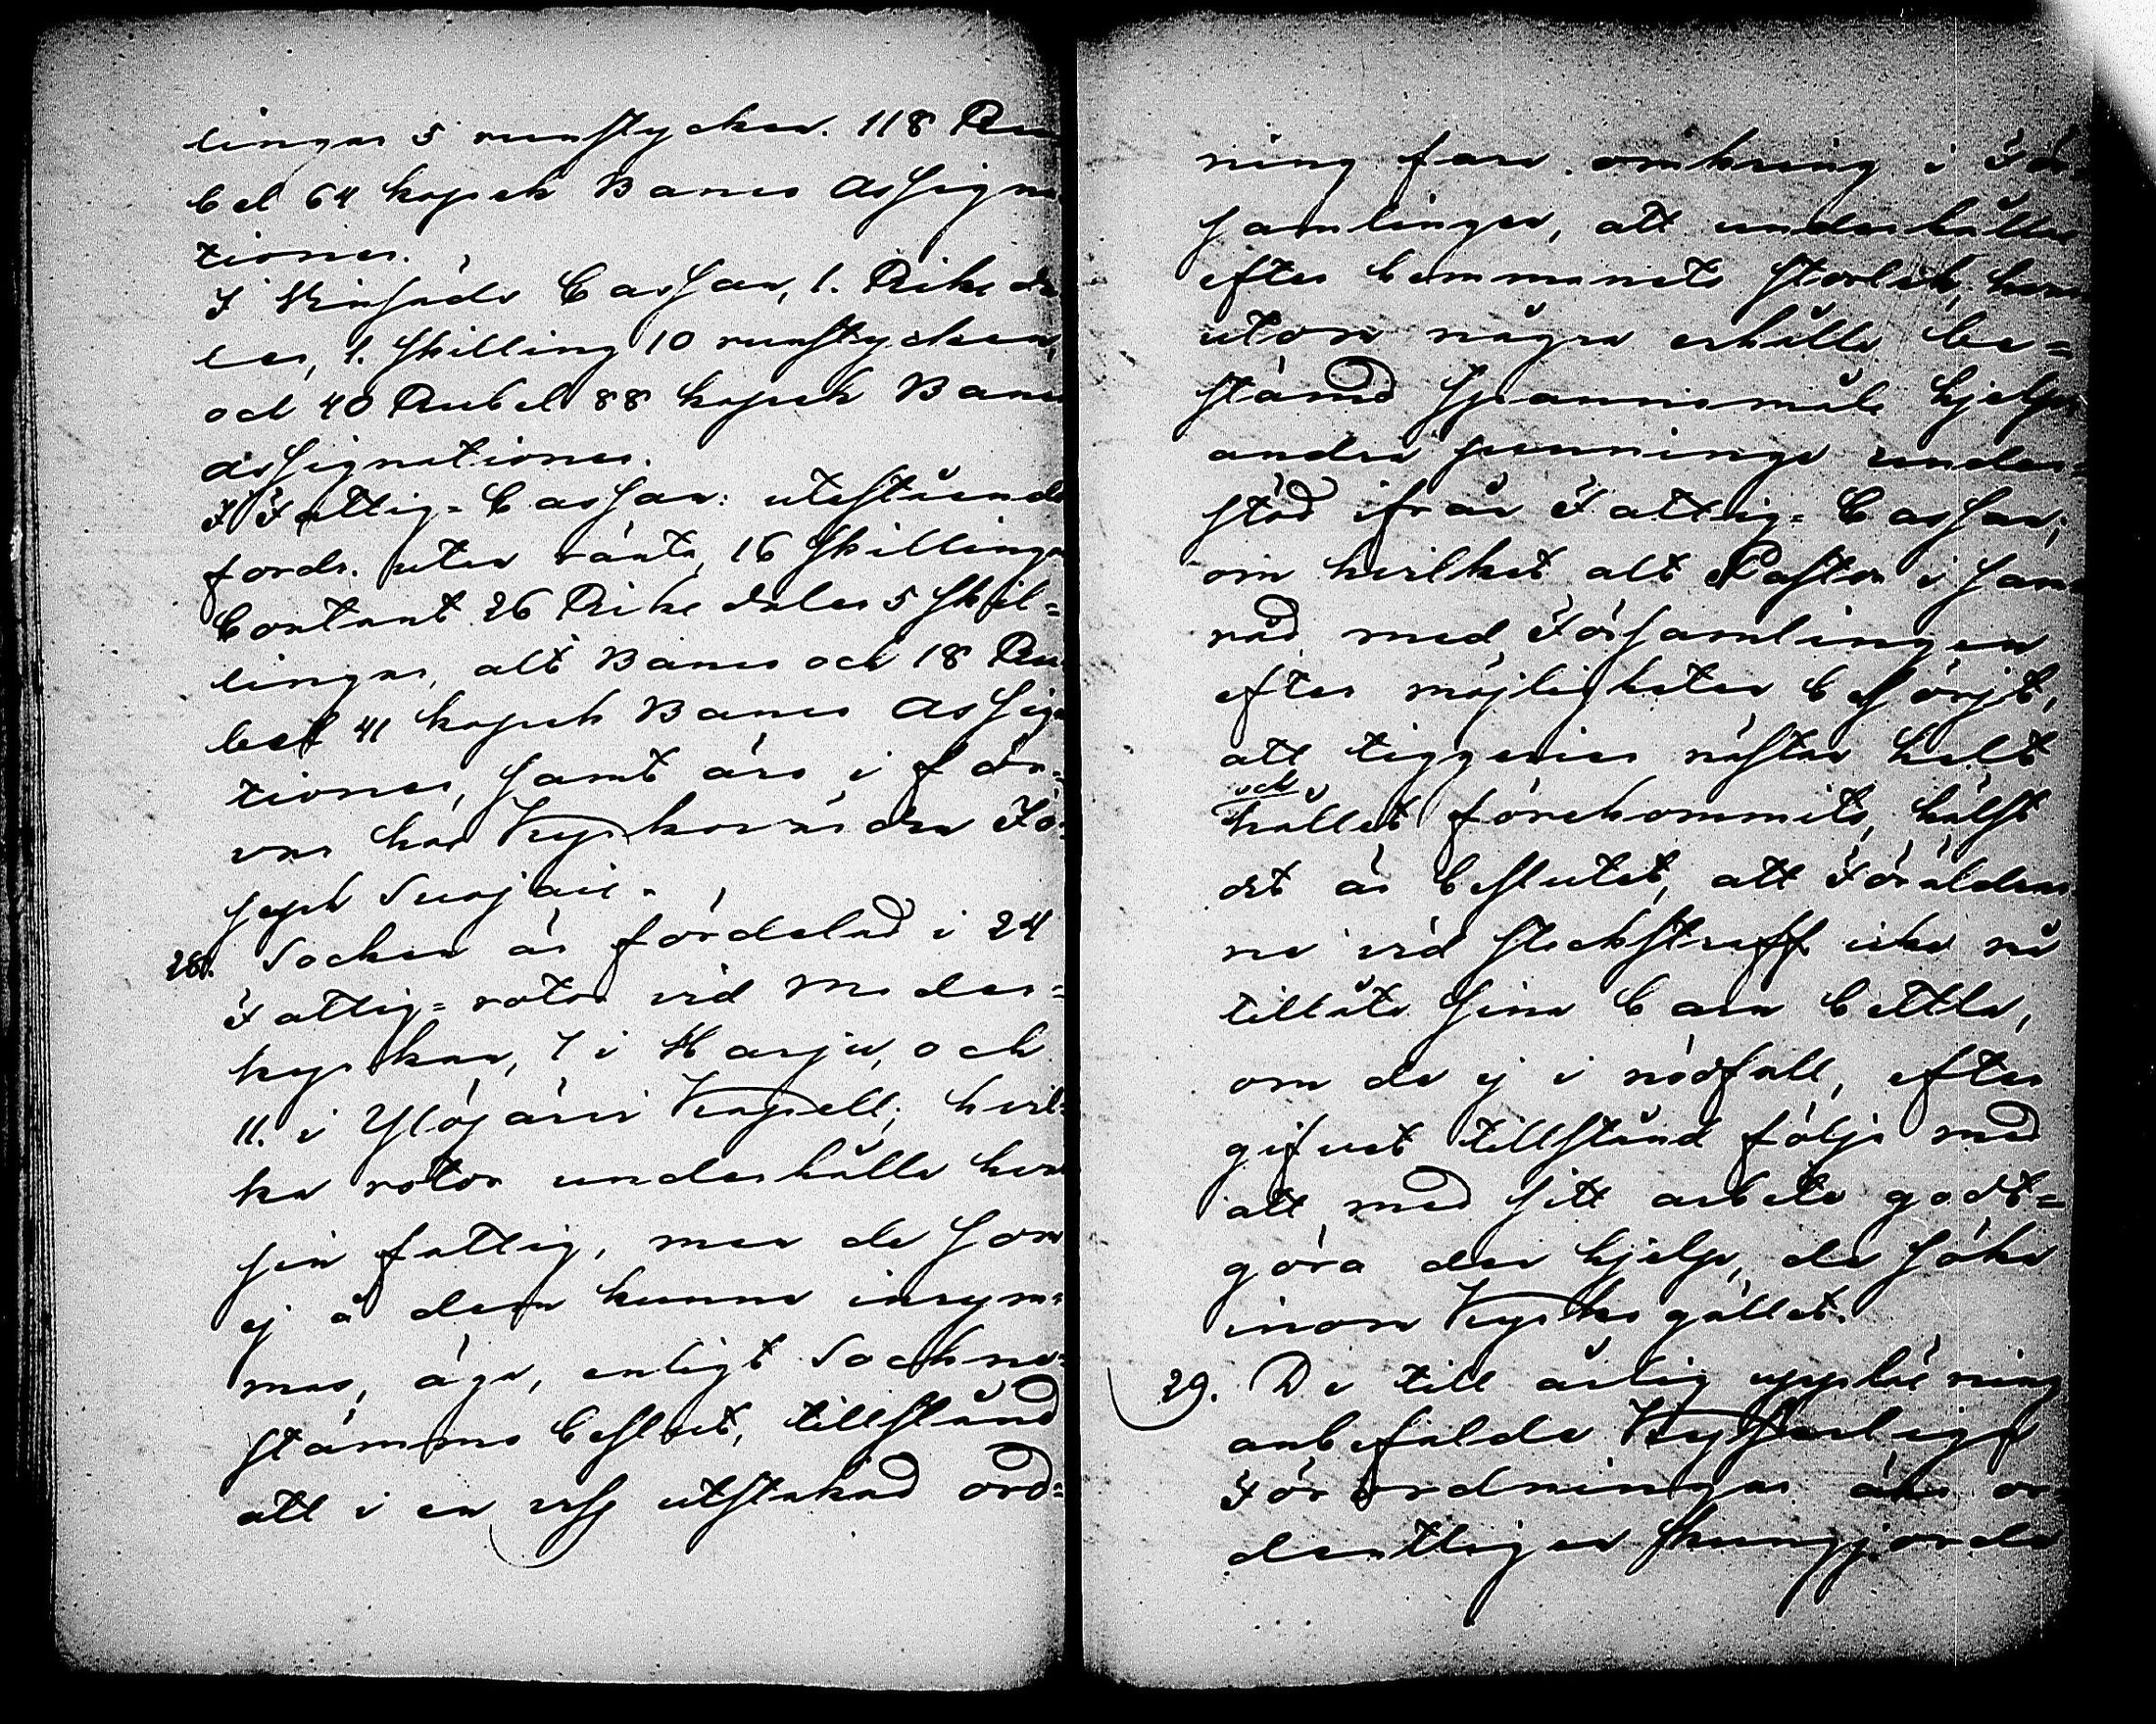 lingar 5 runstycken. 118 Ru
bel 64 kopek Banco Assigna
tioner.
I Vinfåds Cassan, 1. Riksda
ler, 1. skilling 10 runstycken,
och 40 Rubel 88 kopek Banco
assignationer.
I Fattig=Cassan: utestående
fordr. utan ränta, 16 skillingar
Contant 26 Riksdaler 5 skil=
lingar, allt Banco och 18 Ru
bel 41 kopek Banco Assigna
tioner, samt äro i för=
var hos Kyrkovärden Jo=
seph
28. Socken är fördelad i 24
Fattig=rotar vid Moder=
kyrkan, 7 i Harju, och
11. i Ylöjärvi Kapell; hvil=
ka rotor underhålla hvar
sin fattig, men de som
ej å dem kunna inrym=
mas, äga, enligt Sockne=
stämmo beslut, tillstånd
att i en viss utstakad ord=
ning fara omkring i För
samlingen, att underhållas
efter hemmanets storlek, hvar
utom några erhålla be=
stämd Spannmåls hjelp
andra pennings under=
stöd ifrån Fattig=Cassan;
om hvilket allt Pastor i sam
råd med Församlingen
efter möjligheten besörjt,
att tiggerier nästan helt
och
hållet förekommits, hälst
det är beslutet, att Föräldrar
ne vid stockstraff icke må
tillåta sina barn bettla,
om de ej i nödfall, efter
gifvet tillstånd följa med
att med sitt arbete godt=
göra den hjelp, de söka
inom Kyrkogället.
29. De till årlig uppläsning
anbefalde Kejserliga
Förordningar äro or
dentligen kungjorde